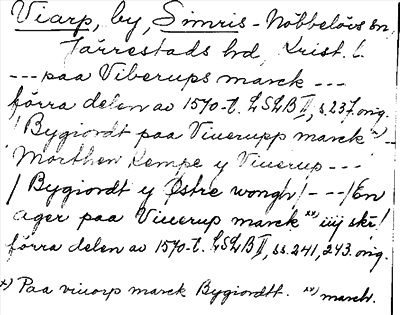 Viarp, by, Simris-Nöbbelövs sn,
Järrestads hd, Krist. l.
--- paa Viberups marck ---
förra delen av 1570-t. LSLB II, s. 237. orig.
/ Bygiordt paa Viuerupp marck x) --
Morthen Kempe y Viuerup ---
/ Bygiordt y Østre wongh / --- / En
ager paa Viuerup marck xx) iiij skr /
förra delen av 1570-t. LSLB II, ss. 241, 243. orig.
x) Paa viuorp marck Bygiordtt. xx) march.